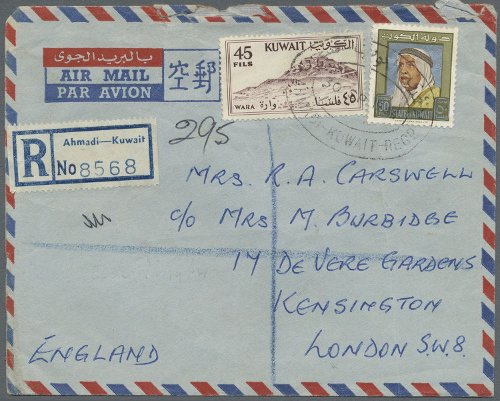 بالبريد الجوي
AIR MAIL
PAR AVION
空郵
45
FILS
KUWAIT الكويت
WARA وارة
فلسا ٤٥
دولة الكويت
50
STATE OF KUWAIT
KUWAIT-REG
R
Ahmadi—Kuwait
No 8568
295
MRS. R. A. CARSWELL
C/O MRS M. BURBIDGE
14 DE VERE GARDENS
KENSINGTON
LONDON S.W.8.
ENGLAND